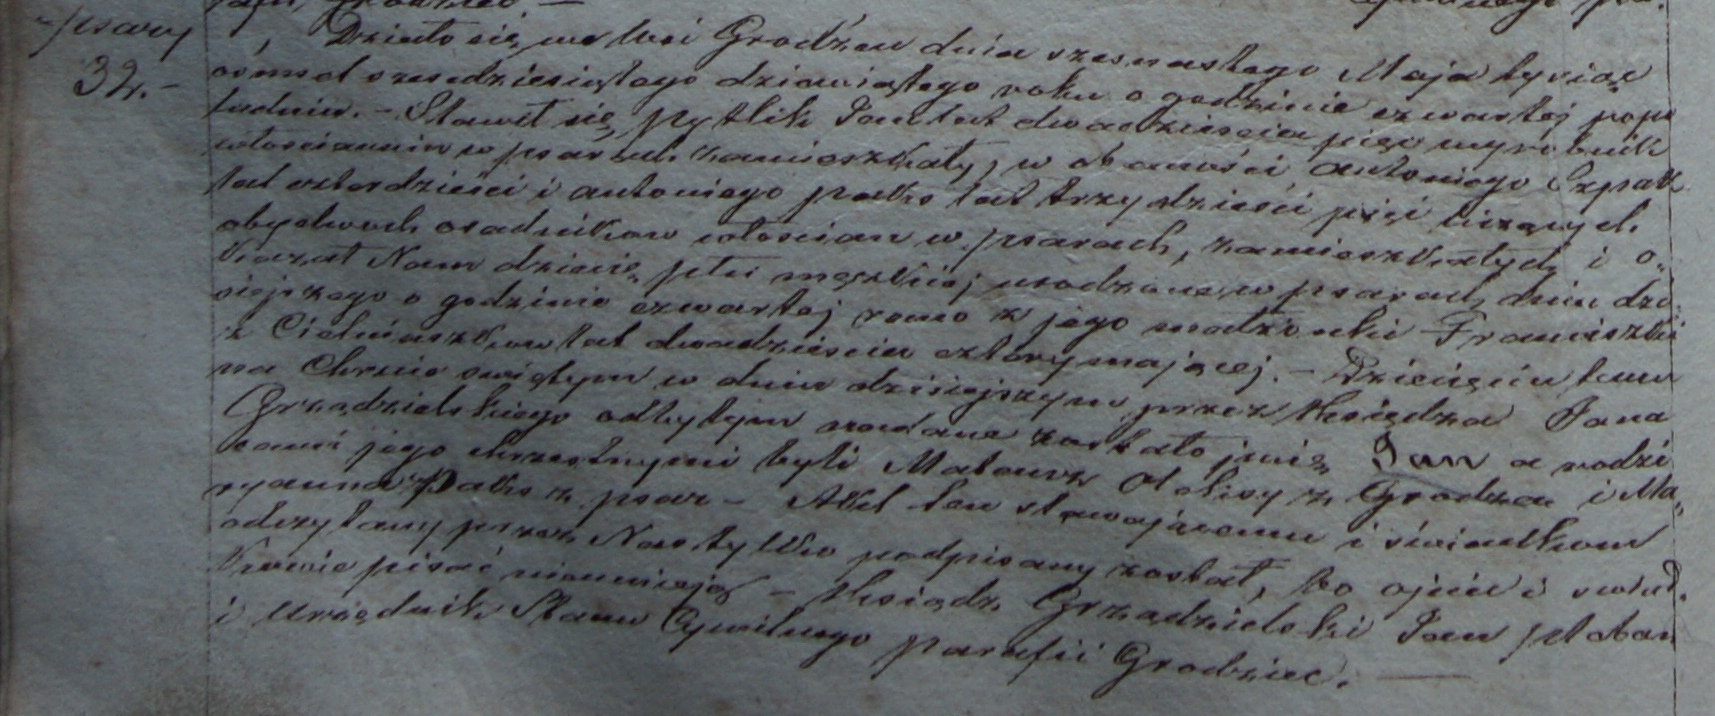 Psary
32.-
Działo się we wsi Grodźcu dnia szesnastego Maja tysiąc
osmset szesdziesiątego dziewiątego roku o godzinie czwartej popo
łudniu. - Stawił się Pytlik Jan lat dwadzieścia pięć wyrobnik
włościanin w psarach zamieszkały, w obecności Antoniego Szpak
lat czterdzieści i antoniego palka lat trzydzieści pięć liczących
obydwoch osadnikow włoscian w psarach, zamieszkałych i o„
kazał Nam dziecię płci męzkiej urodzone w psarach dnia dzi„
siejszego o godzinie czwartej rano z jego małżonki Franciszki
z lat dwadzieścia cztery mającej. - Dziecięciu temu
na Chrzcie swiętym w dniu dzisiejszym przez Księdza Jana
Grządzielskiego odbytym nadane zostało jmię Jan a rodzi
cami jego chrzestnymi byli Mateusz z Grodzca i Ma„
ryanna z psar - Akt ten stawającemu i świadkom
odczytany przez Nas tylko podpisany został, bo ojciec i swiad„
kowie pisać nieumieją - Ksiądz Grządzielski Jan pleban
i Urzędnik Stanu Cywilnego parafii Grodziec.